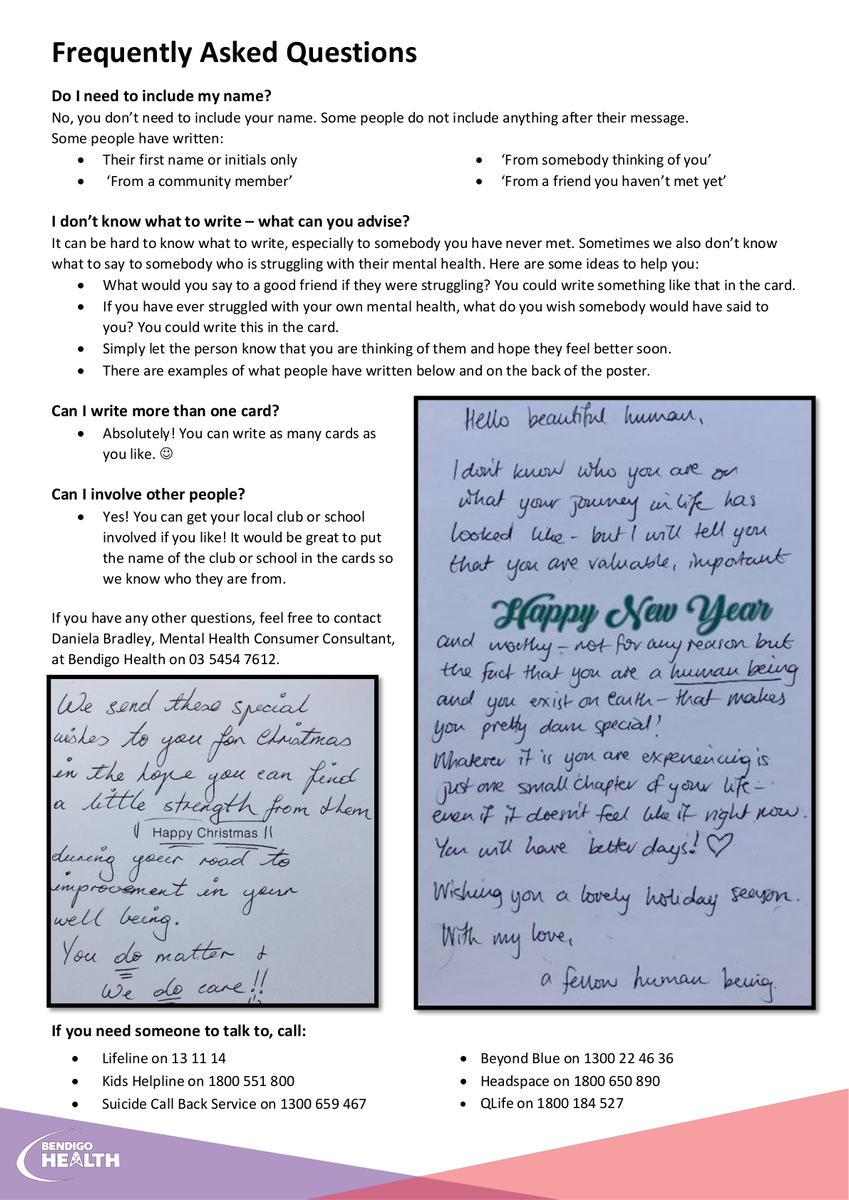 Frequently Asked Questions
Do I need to include my name?
No, you don't need to include your name. Some people do not include anything after their message.
Some people have written:
• Their first name or initials only
• 'From a community member'
• 'From somebody thinking of you'
• 'From a friend you haven't met yet'
I don't know what to write – what can you advise?
It can be hard to know what to write, especially to somebody you have never met. Sometimes we also don't know
what to say to somebody who is struggling with their mental health. Here are some ideas to help you:
• What would you say to a good friend if they were struggling? You could write something like that in the card.
• If you have ever struggled with your own mental health, what do you wish somebody would have said to
you? You could write this in the card.
• Simply let the person know that you are thinking of them and hope they feel better soon.
• There are examples of what people have written below and on the back of the poster.
Can I write more than one card?
• Absolutely! You can write as many cards as
you like. ☺
Can I involve other people?
• Yes! You can get your local club or school
involved if you like! It would be great to put
the name of the club or school in the cards so
we know who they are from.
If you have any other questions, feel free to contact
Daniela Bradley, Mental Health Consumer Consultant,
at Bendigo Health on 03 5454 7612.
We send these special
wishes to you for Christmas
in the hope you can find
a little strength from them
Happy Christmas
during your road to
improvement in your
well being.
You do matter &
We do care!!
Hello beautiful human,
I don't know who you are or
what your journey in life has
looked like – but I will tell you
that you are valuable, important
Happy New Year
and worthy – not for any reason but
the fact that you are a human being
and you exist on earth – that makes
you pretty damn special!
Whatever it is you are experiencing is
just one small chapter of your life –
even if it doesn't feel like it right now.
You will have better days! ♡
Wishing you a lovely holiday season.
With my love,
a fellow human being.
If you need someone to talk to, call:
• Lifeline on 13 11 14
• Kids Helpline on 1800 551 800
• Suicide Call Back Service on 1300 659 467
• Beyond Blue on 1300 22 46 36
• Headspace on 1800 650 890
• QLife on 1800 184 527
BENDIGO
HEALTH